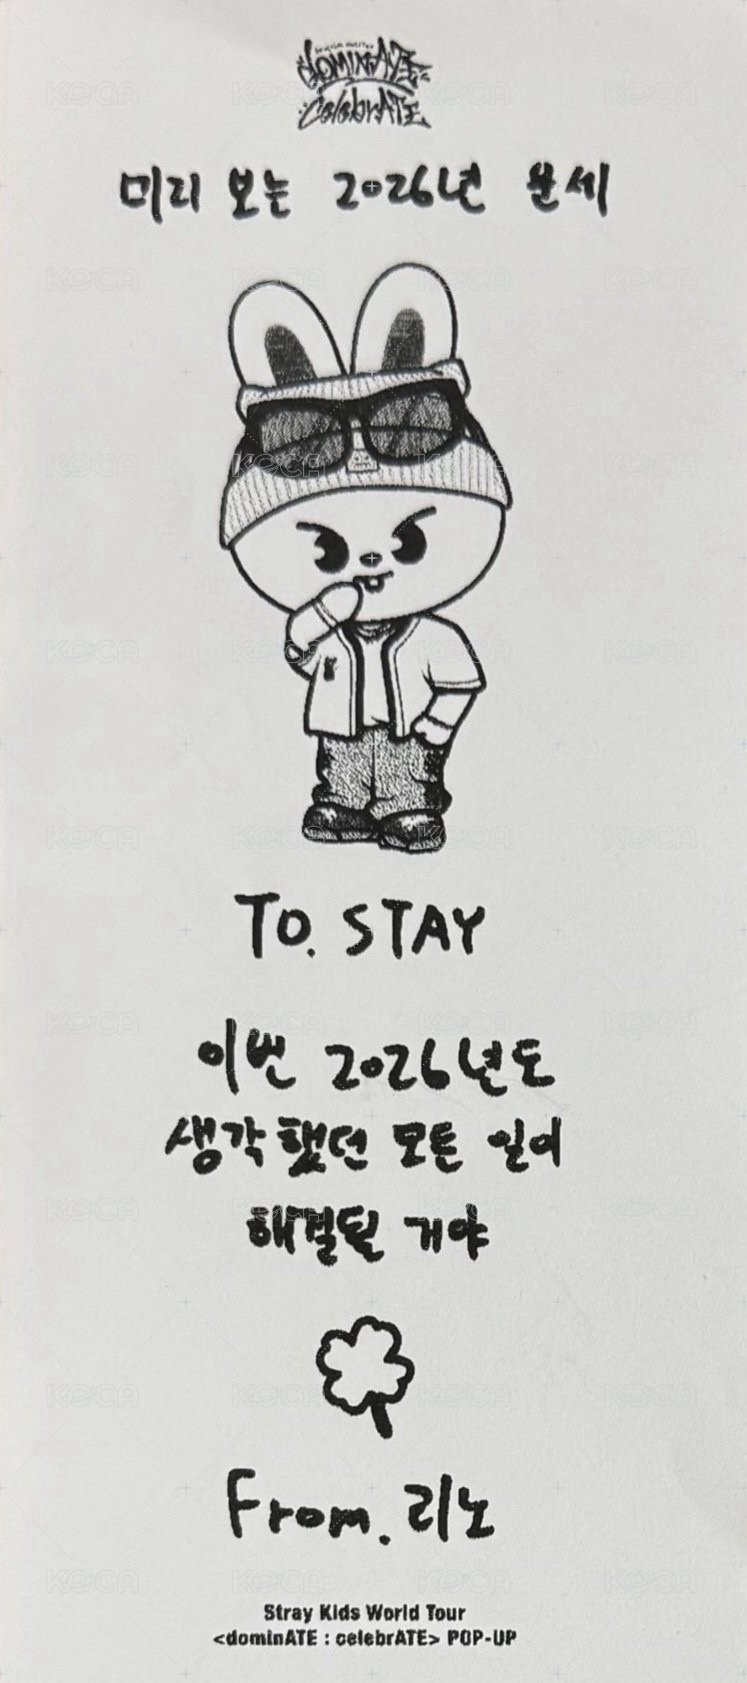 dominATE
celebrATE
미리 보는 2026년 운세
TO. STAY
이번 2026년도
생각했던 모든 일이
해결될 거야
From. 리노
Stray Kids World Tour
<dominATE : celebrATE> POP-UP
KOCA